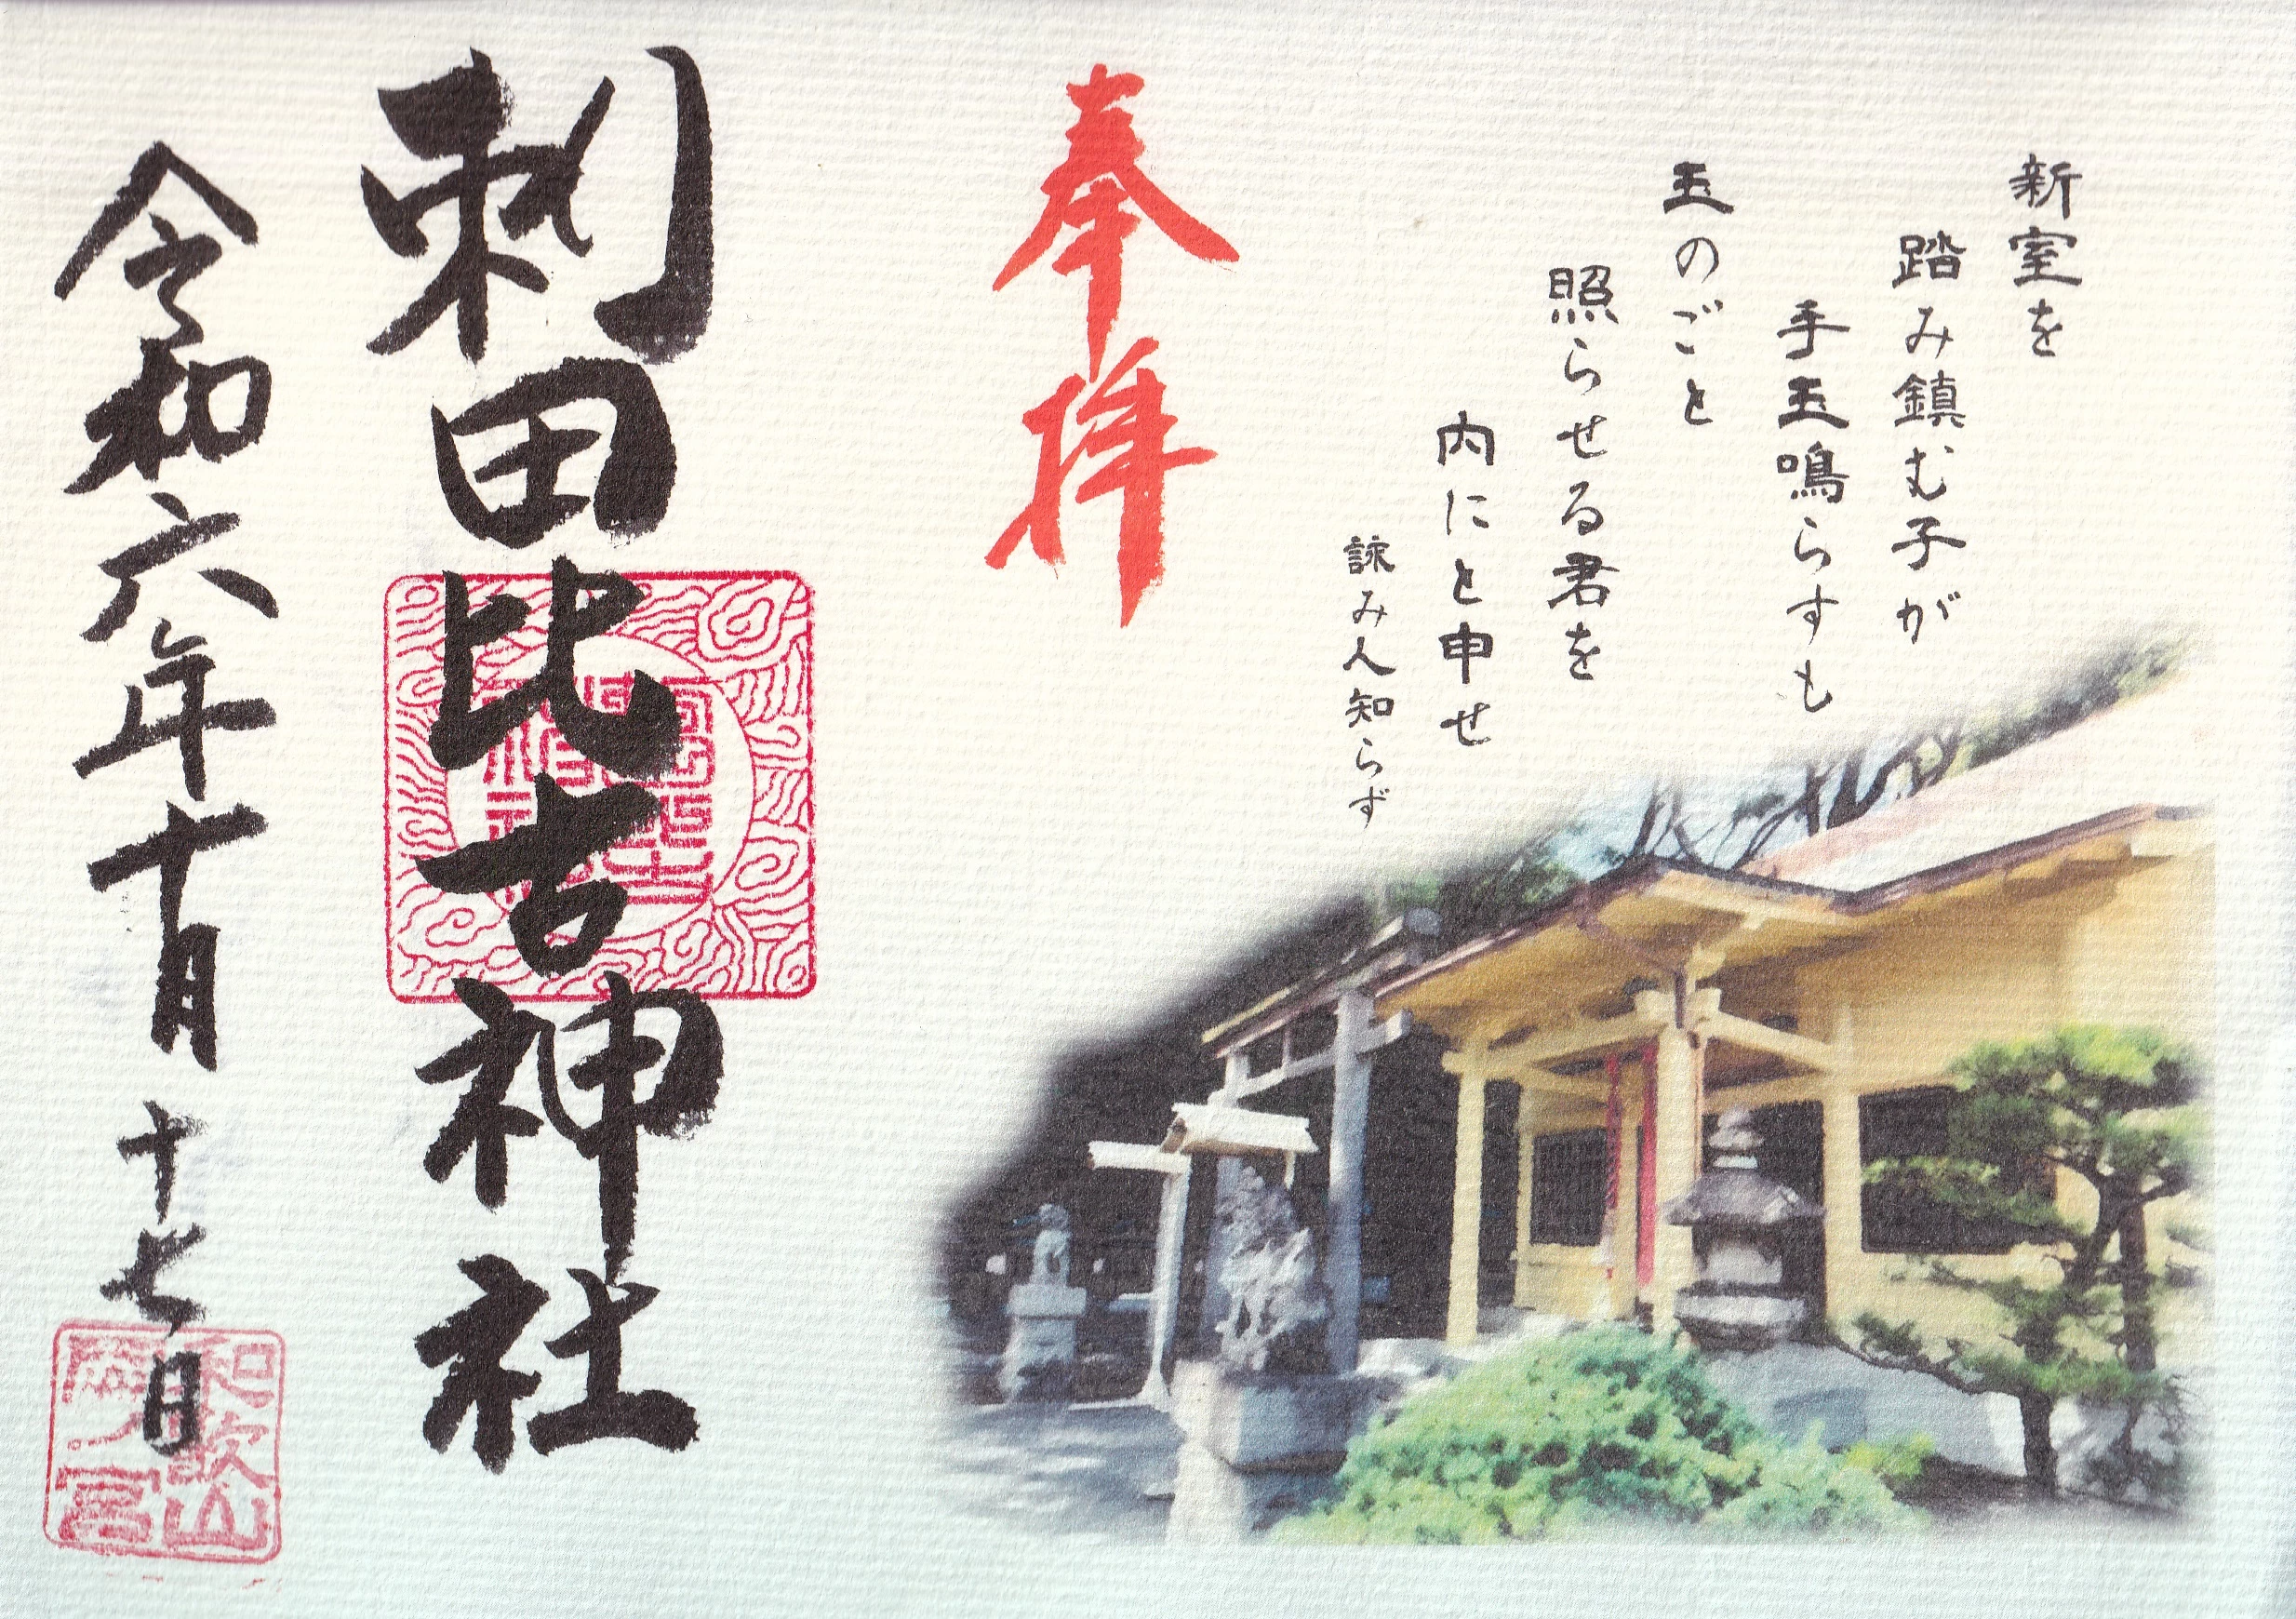 新室を
踏み鎮む子が
手玉鳴らすも
玉のごと
照らせる君を
内にと申せ
詠み人知らず
奉拝
刺田比古神社
令和六年十月十七日
和歌山
岡ノ宮